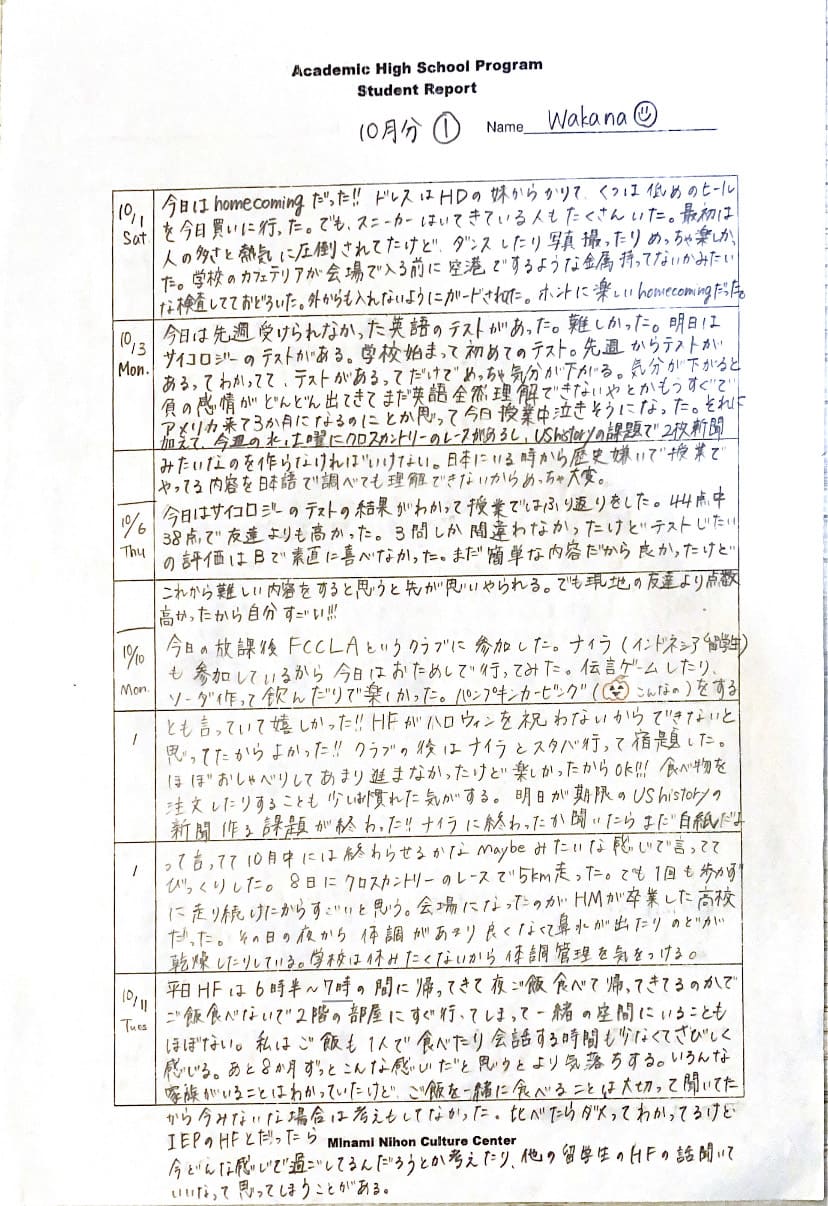 Academic High School Program
Student Report
10月分 ①
Name Wakana
10/1 Sat.
今日はhomecomingだった!! ドレスはHDの妹からかりて、くつは低めのヒール
を今日買いに行った。でも、スニーカーはいてきている人もたくさんいた。最初は
人の多さと熱気に圧倒されてたけど、ダンスしたり写真撮ったりめっちゃ楽しかっ
た。学校のカフェテリアが会場で入る前に空港でするような金属持ってないかみたい
な検査してておどろいた。外からも入れないようにガードされてた。ホントに楽しいhomecomingだった。
10/3 Mon.
今日は先週受けられなかった英語のテストがあった。難しかった。明日は
サイコロジーのテストがある。学校始まって初めてのテスト。先週からテストが
あるってわかってて、テストがあるってだけでめっちゃ気分が下がる。気分が下がると
負の感情がどんどん出てきてまだ英語全然理解できないやとかもうすぐで
アメリカ来て3か月になるのにとか思って今日授業中泣きそうになった。それに
加えて、今週の水、土曜にクロスカントリーのレースがあるし、US historyの課題で2枚新聞
みたいなのを作らなければいけない。日本にいる時から歴史嫌いで授業で
やってる内容を日本語で調べても理解できないからめっちゃ大変。
10/6 Thu
今日はサイコロジーのテストの結果がわかって授業ではふり返りをした。44点中
38点で友達よりも高かった。3問しか間違わなかったけどテストじたい
の評価はBで素直に喜べなかった。まだ簡単な内容だから良かったけど
これから難しい内容をすると思うと先が思いやられる。でも現地の友達より点数
高かったから自分すごい!!!
10/10 Mon.
今日の放課後FCCLAというクラブに参加した。ナイラ(インドネシア留学生)
も参加しているから今日はおためしで行ってみた。伝言ゲームしたり、
ソーダ作って飲んだりで楽しかった。パンプキンカービング(こんなの)をする
とも言っていて嬉しかった!! HFがハロウィンを祝わないからできないと
思ってたからよかった!! クラブの後はナイラとスタバ行って宿題した。
ほぼおしゃべりしてあまり進まなかったけど楽しかったからOK!!! 食べ物を
注文したりすることも少しは慣れた気がする。明日が期限のUS historyの
新聞作る課題が終わった!! ナイラに終わったか聞いたらまだ白紙だよ
って言ってて10月中には終わらせるかなmaybeみたいな感じで言ってて
びっくりした。8日にクロスカントリーのレースで5km走った。でも1回も歩かず
に走り続けたからすごいと思う。会場になったのがHMが卒業した高校
だった。その日の夜から体調があまり良くなくて鼻水が出たりのどが
乾燥したりしている。学校は休みたくないから体調管理を気をつける。
10/11 Tues
平日HFは6時半〜7時の間に帰ってきて夜ご飯食べて帰ってきてるのかで
ご飯食べないで2階の部屋にすぐ行ってしまって一緒の空間にいることも
ほぼない。私はご飯も1人で食べたり会話する時間も少なくてさびしく
感じる。あと8か月ずっとこんな感じだと思うとより気落ちする。いろんな
家族がいることはわかっていたけど、ご飯を一緒に食べることは大切って聞いてた
から今みたいな場合は考えもしてなかった。比べたらダメってわかってるけど
IEPのHFとだったら
Minami Nihon Culture Center
今どんな感じで過ごしてるんだろうとか考えたり、他の留学生のHFの話聞いて
いいなって思ってしまうことがある。